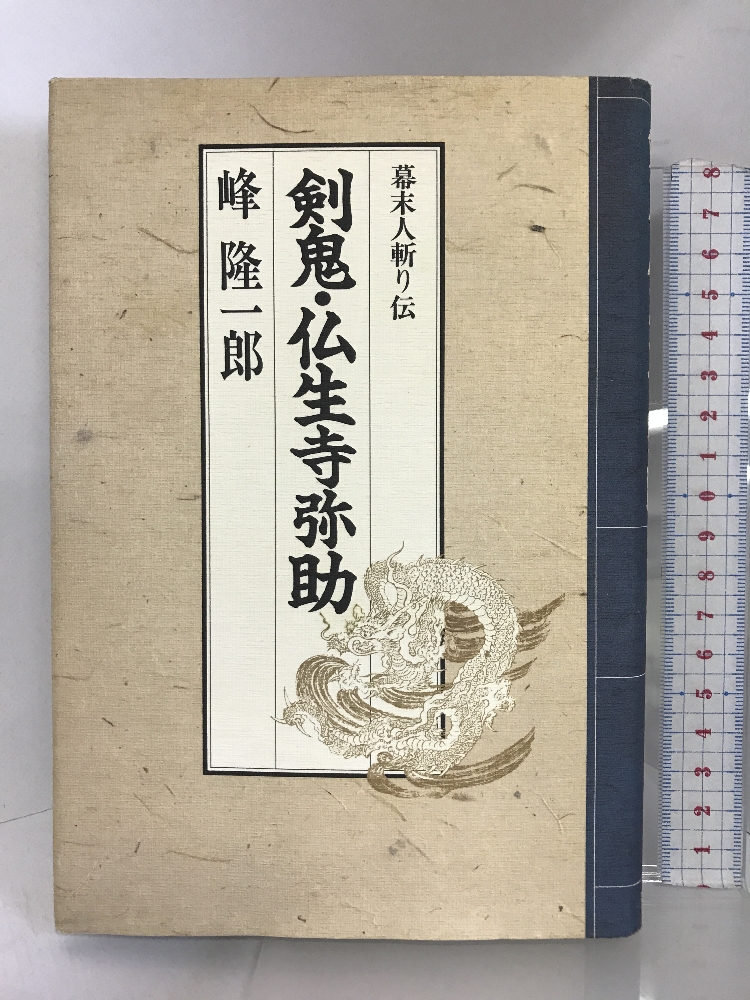 幕末人斬り伝
剣鬼・仏生寺弥助
峰隆一郎
8
7
6
5
4
3
2
1
0
9
8
7
6
5
4
3
2
1